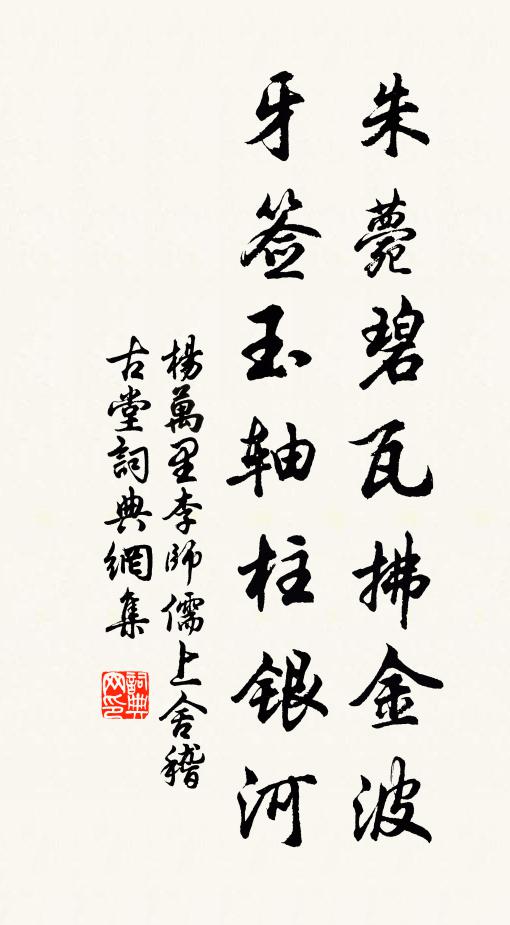 朱甍碧瓦拂金波
牙签玉轴柱银河
楊萬里李師儒上舍稽
古堂詞典網集
詞典网印